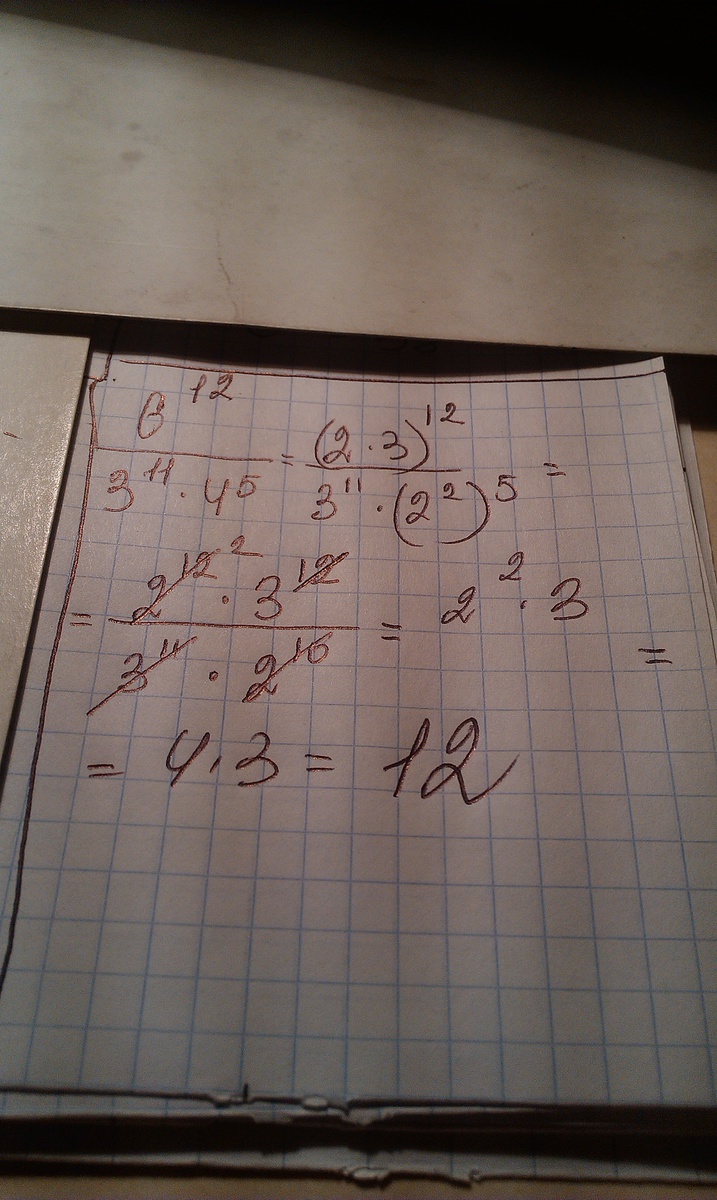 6^12 / (3^11 · 4^5) = (2 · 3)^12 / (3^11 · (2^2)^5) =
= (2^12 ^2 · 3^12) / (3^11 · 2^10) = 2^2 · 3 =
= 4 · 3 = 12